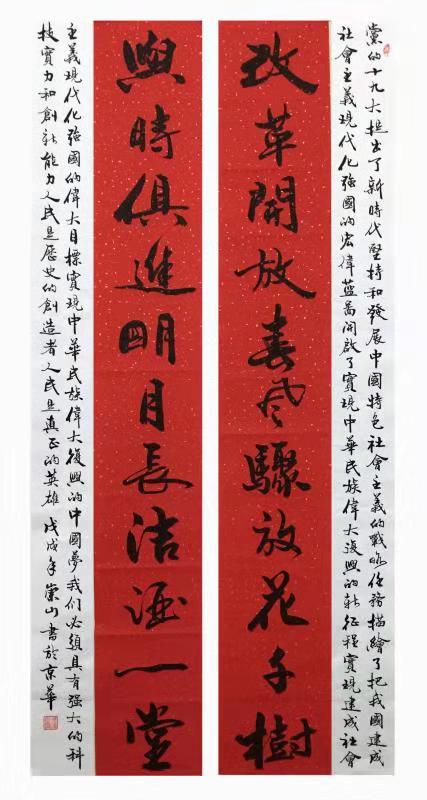 黨的十九大提出了新時代堅持和發展中國特色社會主義的戰略任務描繪了把我國建成
社會主義現代化強國的宏偉藍啚開啟了實現中華民族偉大復興的新征程實現建成社會
改革開放春风驟放花千樹
與時俱進明月長洁一堂
主義現代化強國的偉大目標實現中華民族偉大復興的中國夢我們必須具有強大的科
技實力和創新能力人民是歷史的創造者人民是真正的英雄 戊戌年崇山書於京華